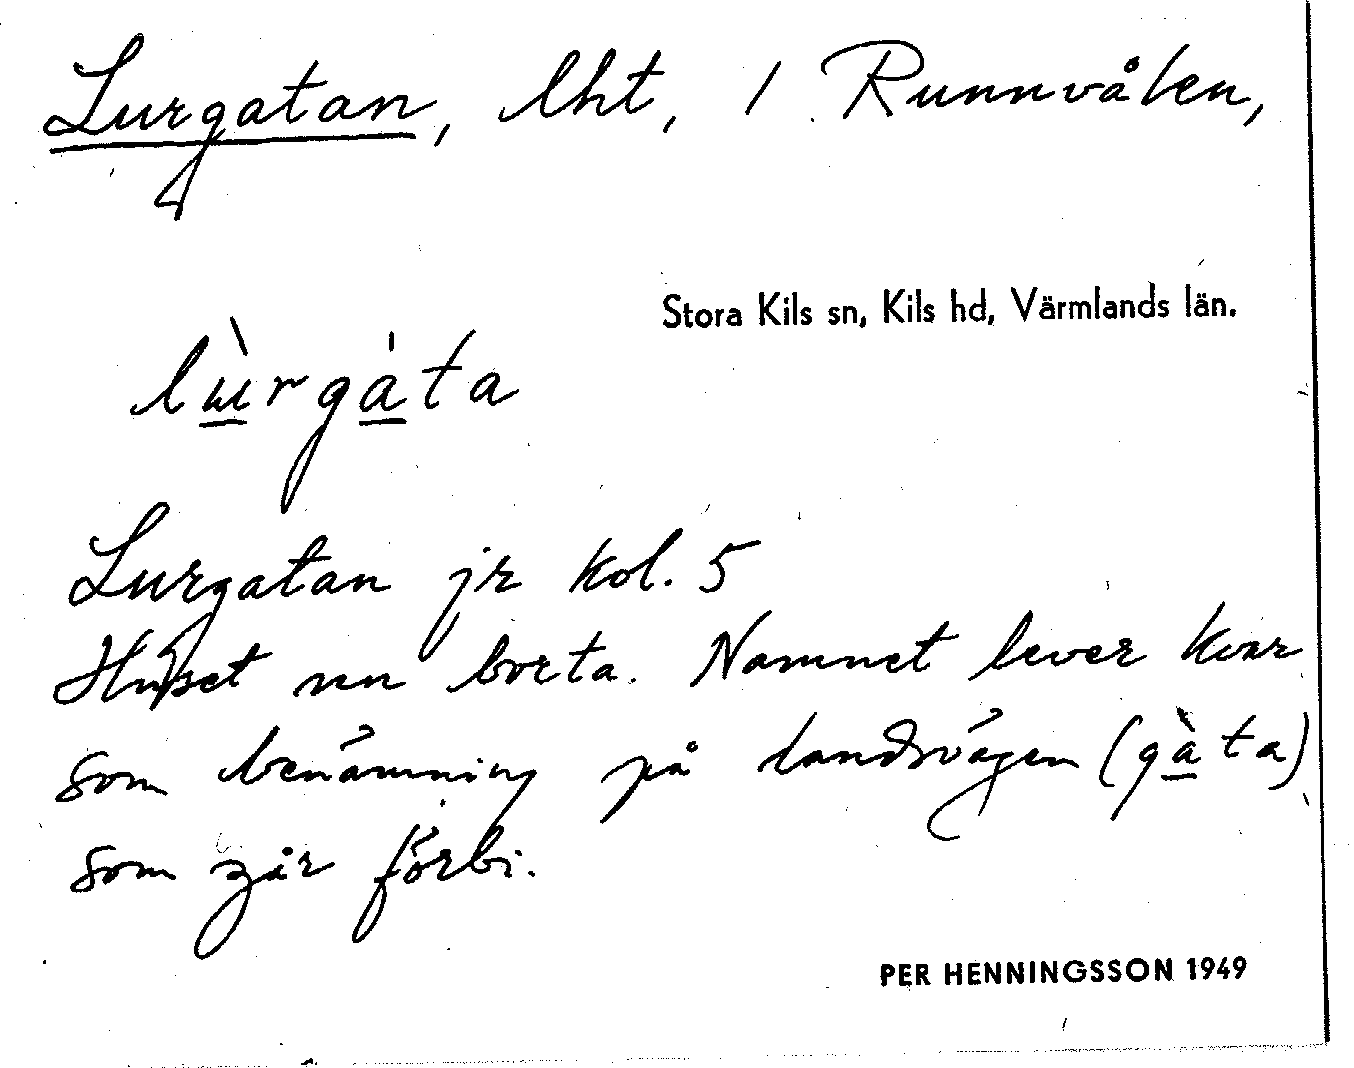 Lurgatan, lht, 1 Runnvålen,
Stora Kils sn, Kils hd, Värmlands län.
lùrgáta
Lurgatan jr kol. 5
Huset nu borta. Namnet lever kvar
som benämning på landsvägen (gàta)
som går förbi.
PER HENNINGSSON 1949